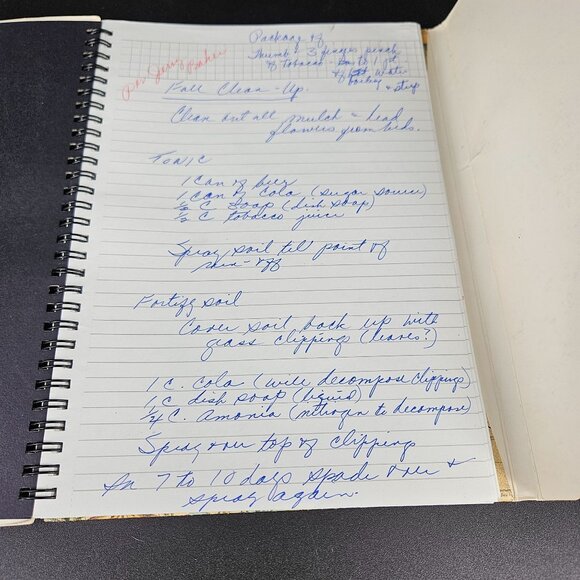 Package of
Thumb - 3 fingers pinch
of tobacco - to 1 qt
of hot water
boiling & steep
Per Jerry Baker
Fall Clean-Up.
Clean out all mulch & dead
flowers from beds.
Tonic
1 Can of beer
1 Can of Cola (sugar source)
1/2 C soap (dish soap)
1/2 C tobacco juice
Spray soil til point of
run-off
Fortify soil
Cover soil back up with
grass clippings (leaves?)
1 C. Cola (will decompose clippings)
1 C dish soap (liquid)
1/4 C. Amonia (nitrogen to decompose)
Spray over top of clipping
In 7 to 10 days spade over &
spray again.